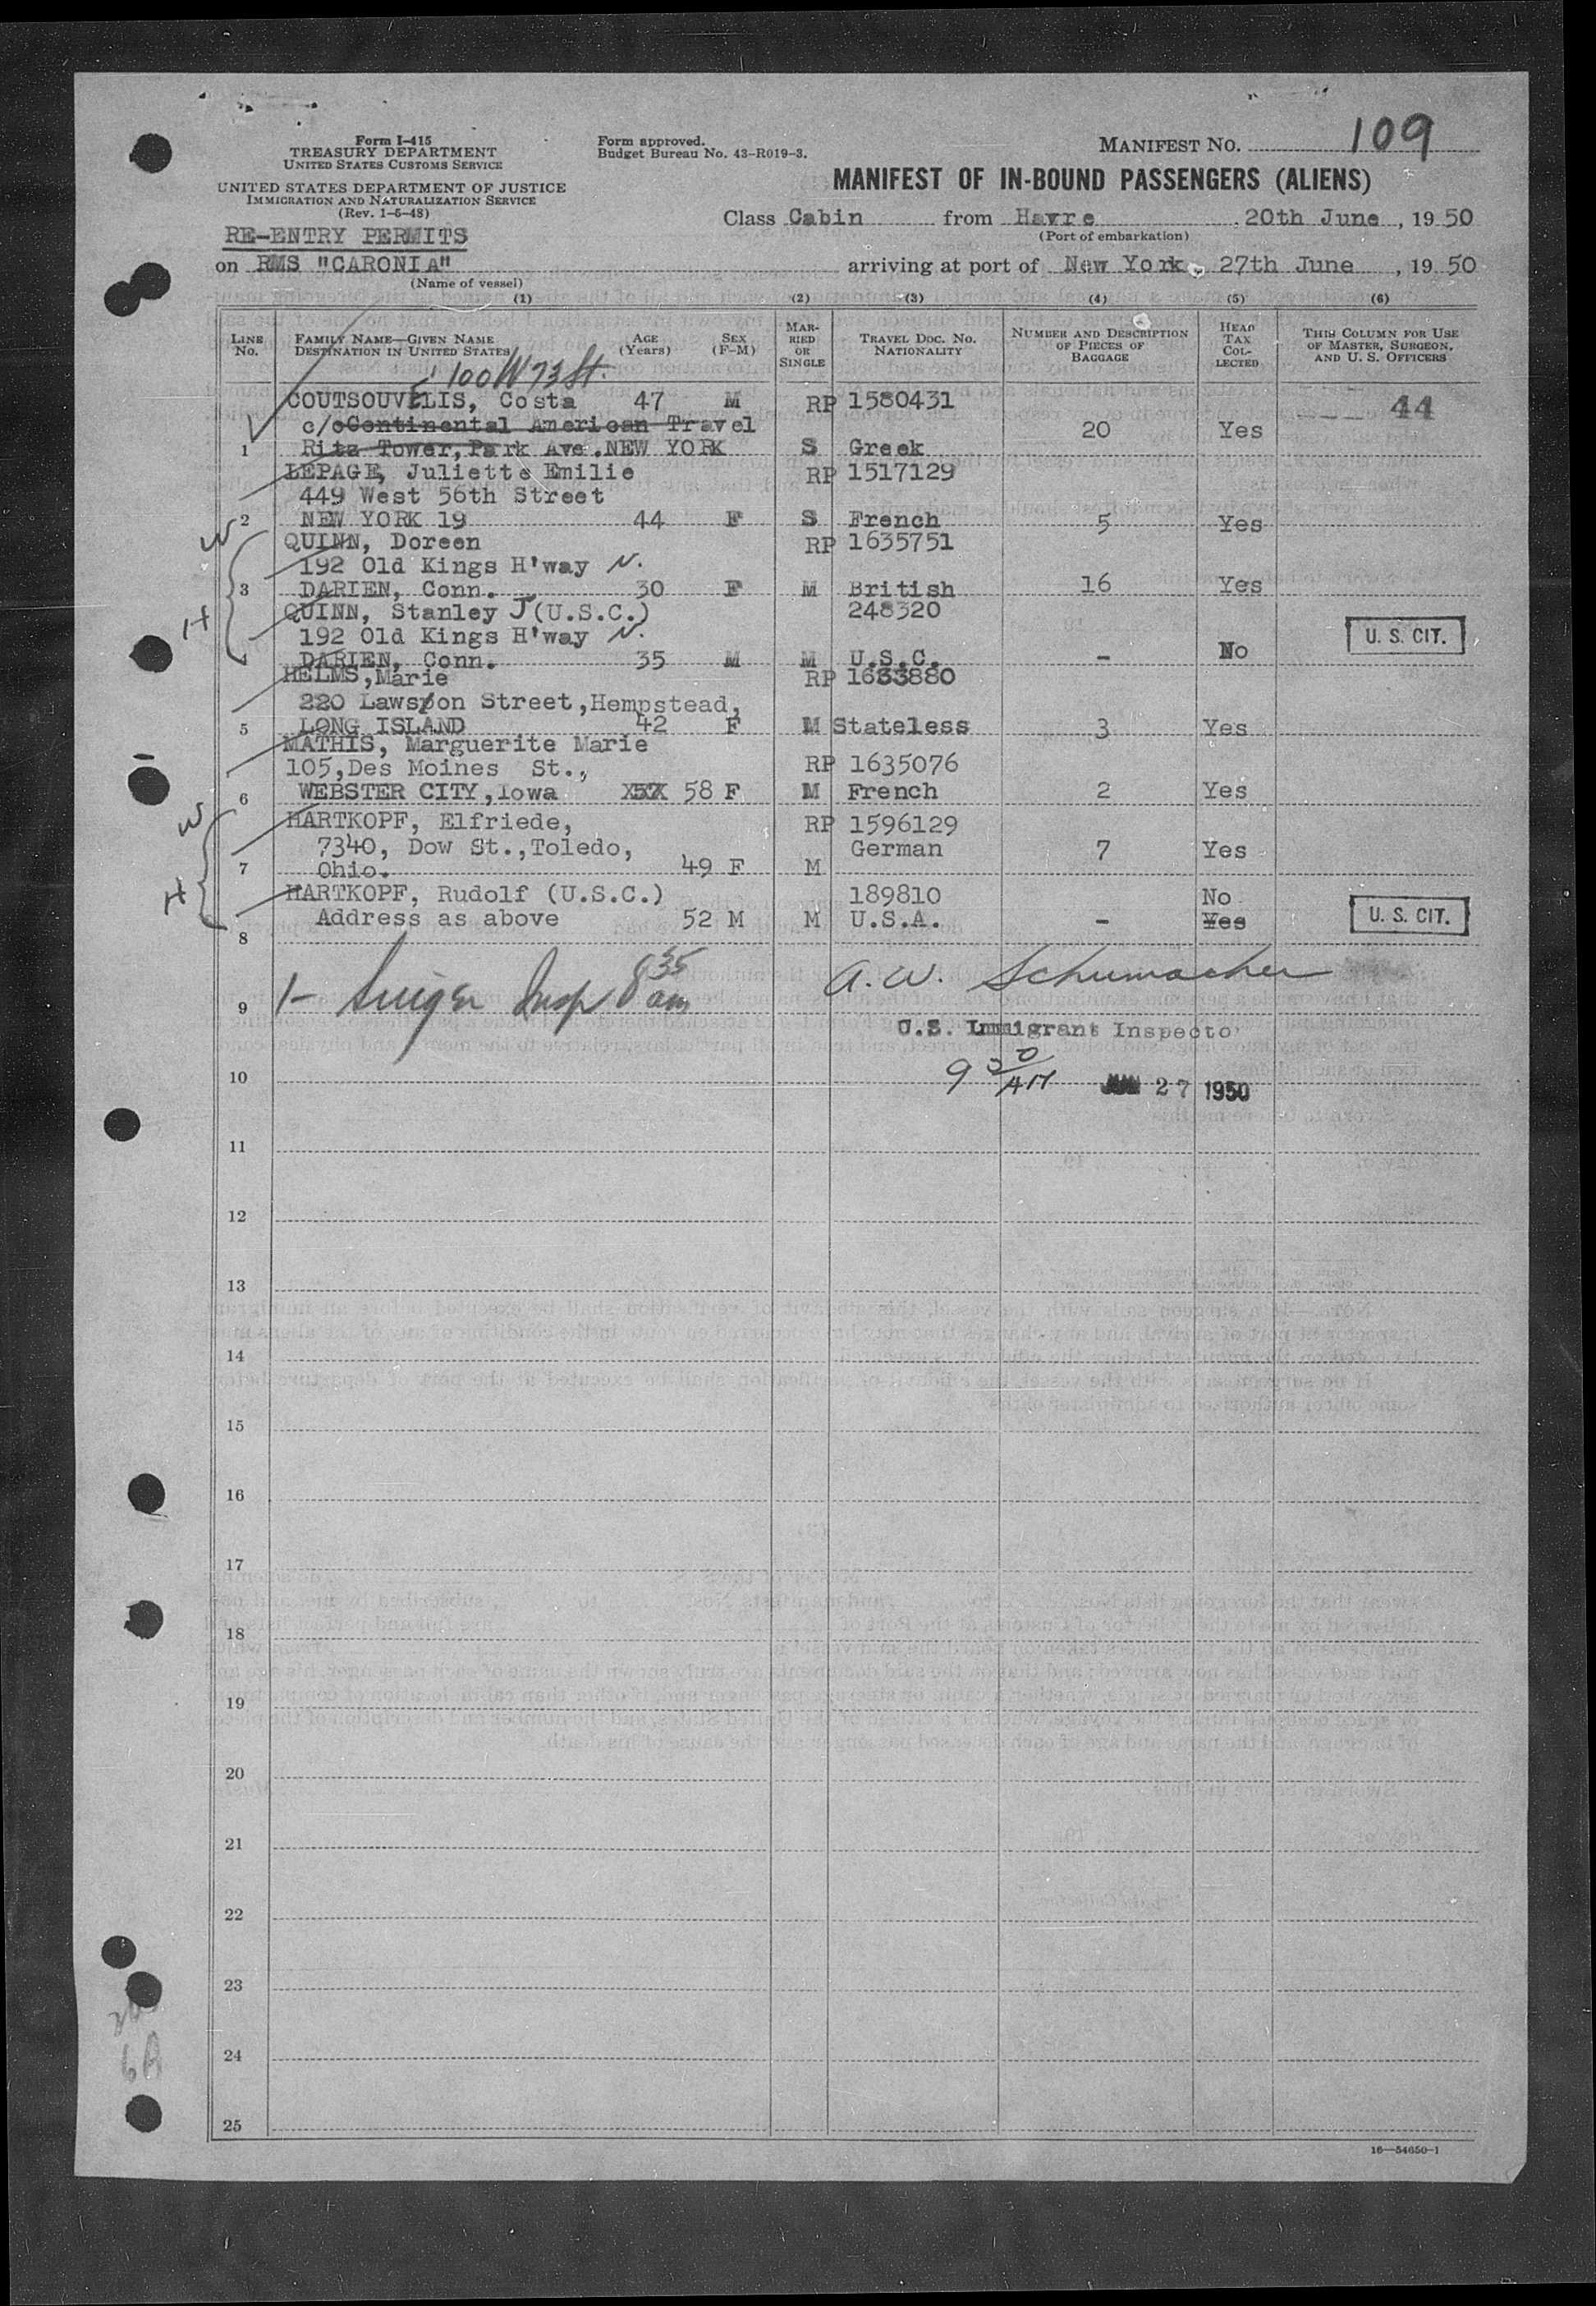 Form I-415
TREASURY DEPARTMENT
UNITED STATES CUSTOMS SERVICE
UNITED STATES DEPARTMENT OF JUSTICE
IMMIGRATION AND NATURALIZATION SERVICE
(Rev. 1-5-48)
Form approved.
Budget Bureau No. 43-R019-3.
MANIFEST NO. 109
MANIFEST OF IN-BOUND PASSENGERS (ALIENS)
Class Cabin from Havre 20th June, 1950
(Port of embarkation)
RE-ENTRY PERMITS
on RMS "CARONIA" arriving at port of New York, 27th June, 1950
(Name of vessel)
(1) (2) (3) (4) (5) (6)
LINE No. FAMILY NAME—GIVEN NAME DESTINATION IN UNITED STATES AGE (Years) SEX (F-M) MARRIED OR SINGLE TRAVEL DOC. NO. NATIONALITY NUMBER AND DESCRIPTION OF PIECES OF BAGGAGE HEAD TAX COLLECTED THIS COLUMN FOR USE OF MASTER, SURGEON, AND U. S. OFFICERS
100 W 73 St.
COUTSOUVELIS, Costa 47 M RP 1580431 44
c/o Continental American Travel 20 Yes
1 Ritz Tower, Park Ave. NEW YORK S Greek
LEPAGE, Juliette Emilie RP 1517129
449 West 56th Street
2 NEW YORK 19 44 F S French 5 Yes
W
QUINN, Doreen RP 1635751
192 Old Kings H'way N.
3 DARIEN, Conn. 30 F M British 16 Yes
H
QUINN, Stanley J (U.S.C.) 248320
192 Old Kings H'way N. U. S. CIT.
DARIEN, Conn. 35 M M U.S.C. - No
HELMS, Marie RP 1633880
220 Lawson Street, Hempstead,
5 LONG ISLAND 42 F M Stateless 3 Yes
MATHIS, Marguerite Marie
105, Des Moines St., RP 1635076
6 WEBSTER CITY, Iowa 58 F M French 2 Yes
W
HARTKOPF, Elfriede, RP 1596129
7340, Dow St., Toledo, German 7 Yes
7 Ohio. 49 F M
H
HARTKOPF, Rudolf (U.S.C.) 189810 No
Address as above 52 M M U.S.A. - Yes U. S. CIT.
8
9 1- Insp 8 35 am A. W. Schumacher
U.S. Immigrant Inspecto
9 30 AM
10 JUN 27 1950
11
12
13
14
15
16
17
18
19
20
21
22
23
24
25
16—54650-1